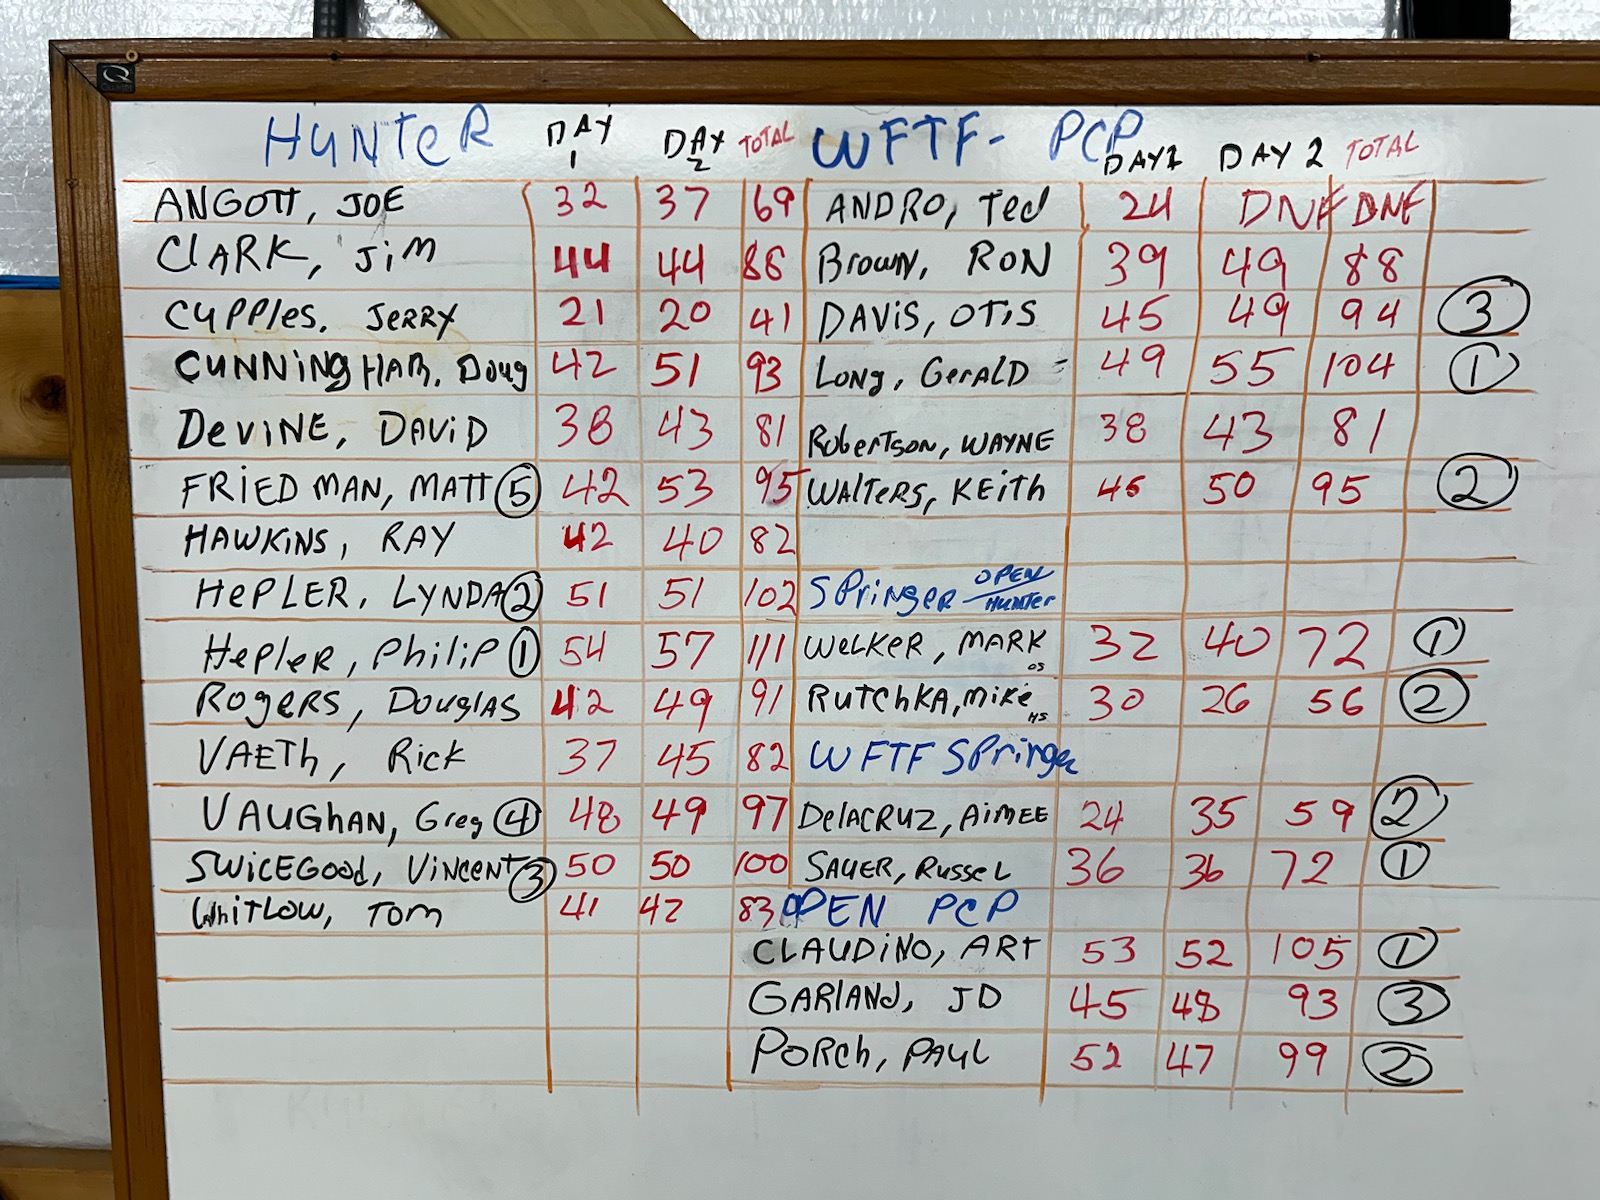 HUNTER DAY 1 DAY 2 TOTAL
ANGOTT, JOE 32 37 69
CLARK, JiM 44 44 88
CUPPles. JERRY 21 20 41
CUNNiNgHAM, Doug 42 51 93
DeViNE, DAViD 38 43 81
FRiEDMAN, MATT 5 42 53 95
HAWKiNS, RAY 42 40 82
HePLER, LYNDA 2 51 51 102
HePleR, PhiliP 1 54 57 111
ROgeRS, DOUglAS 42 49 91
VAETh, Rick 37 45 82
VAUGhAN, Greg 4 48 49 97
SWiCEGOOd, ViNCENT 3 50 50 100
WhiTLOW, TOM 41 42 83
WFTF- PCP DAY1 DAY 2 TOTAL
ANDRO, Ted 24 DNF DNF
BROWN, RON 39 49 88
DAViS, OTiS 45 49 94 3
LONg, GeRAlD 49 55 104 1
RObeRTSON, WAYNE 38 43 81
WAlTeRS, KEiTh 45 50 95 2
SPRiNgeR OPEN/HUNTER
WeLKER, MARK OS 32 40 72 1
RUTChKA, Mike HS 30 26 56 2
WFTF SPRiNgeR
DelACRUZ, AiMEE 24 35 59 2
SAUER, RusseL 36 36 72 1
OPEN PCP
CLAUDiNO, ART 53 52 105 1
GARlANd, JD 45 48 93 3
PORCh, PAUL 52 47 99 2